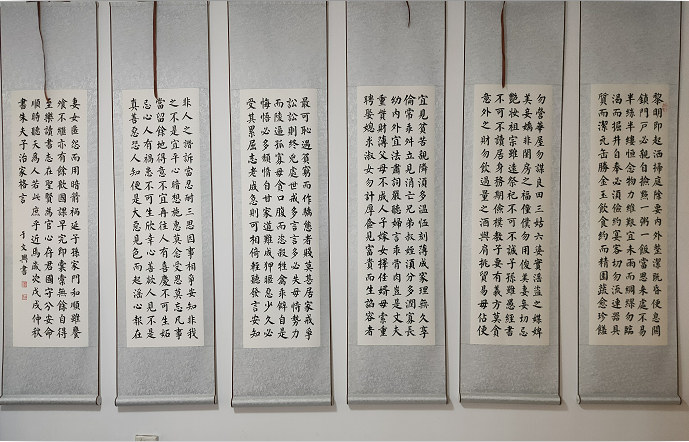 黎明即起洒掃庭除要內外整潔既昏便息關
鎖門戶必親自檢點一粥一飯當思來處不易
半絲半縷恒念物力維艱宜未雨而綢繆勿臨
渴而掘井自奉必須儉約宴客切勿流連器具
質而潔瓦缶勝金玉飲食約而精園蔬愈珍饈
勿營華屋勿謀良田三姑六婆實淫盜之媒婢
美妾嬌非閨房之福僮僕勿用俊美妻妾切忌
艷妝祖宗雖遠祭祀不可不誠子孫雖愚經書
不可不讀居身務期儉樸教子要有義方莫貪
意外之財勿飲過量之酒與肩挑貿易毋佔便
宜見貧苦親鄰須多溫恤刻薄成家理無久享
倫常乖舛立見消亡兄弟叔姪須分多潤寡長
幼內外宜法肅詞嚴聽婦言乖骨肉豈是丈夫
重貲財薄父母不成人子嫁女擇佳婿毋索重
聘娶媳求淑女勿計厚奩見富貴而生諂容者
最可恥遇貧窮而作驕態者賤莫甚居家戒爭
訟訟則終凶處世戒多言言多必失毋恃勢力
而陵逼孤寡毋貪口腹而恣殺牲禽乖僻自是
悔悟必多頹惰自甘家道難成狎昵惡少久必
受其累屈志老成急則可相倚輕聽發言安知
非人之譖訴當忍耐三思因事相爭安知非我
之不是宜平心暗想施惠莫念受恩莫忘凡事
當留餘地得意不宜再往人有喜慶不可生妬
忌心人有禍患不可生欣幸心善欲人見不是
真善惡恐人知便是大惡見色而起淫心報在
妻女匿怨而用暗箭禍延子孫家門和順雖饔
飧不繼亦有餘歡國課早完即囊橐無餘自得
至樂讀書志在聖賢為官心存君國守分安命
順時聽天為人若此庶乎近焉歲次戊戌仲秋
書朱夫子治家格言 文興書